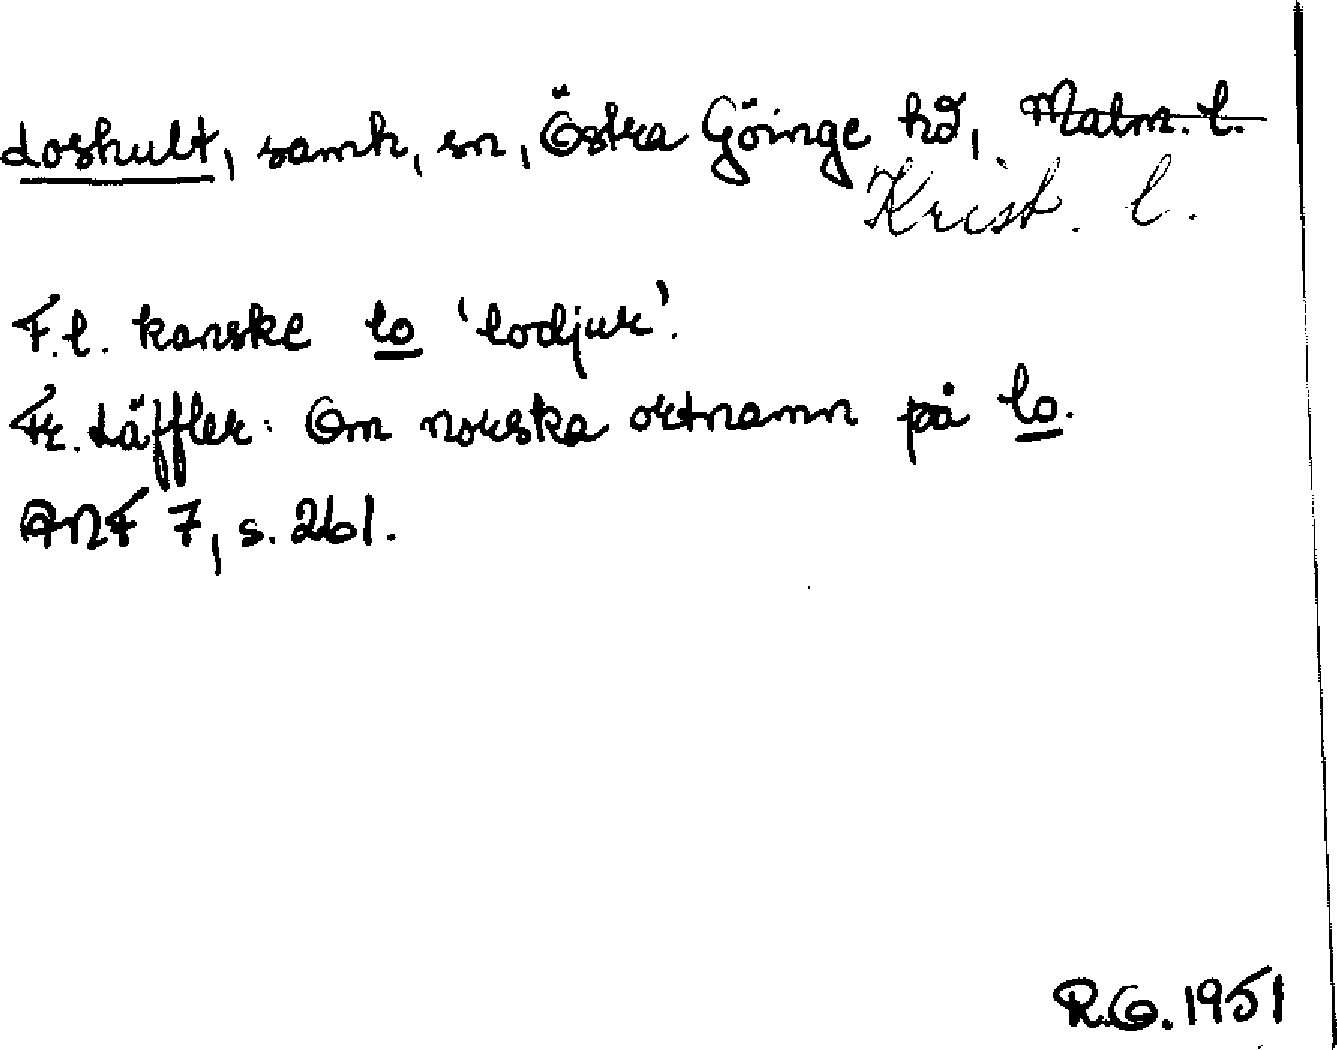 Loshult, samh, sn, Östra Göinge hd, Malm. l.
Krist. l.
F.l. kanske lo 'lodjur'.
Fr. Läffler: Om norska ortnamn på lo.
ANF 7, s. 261.
R.G. 1951